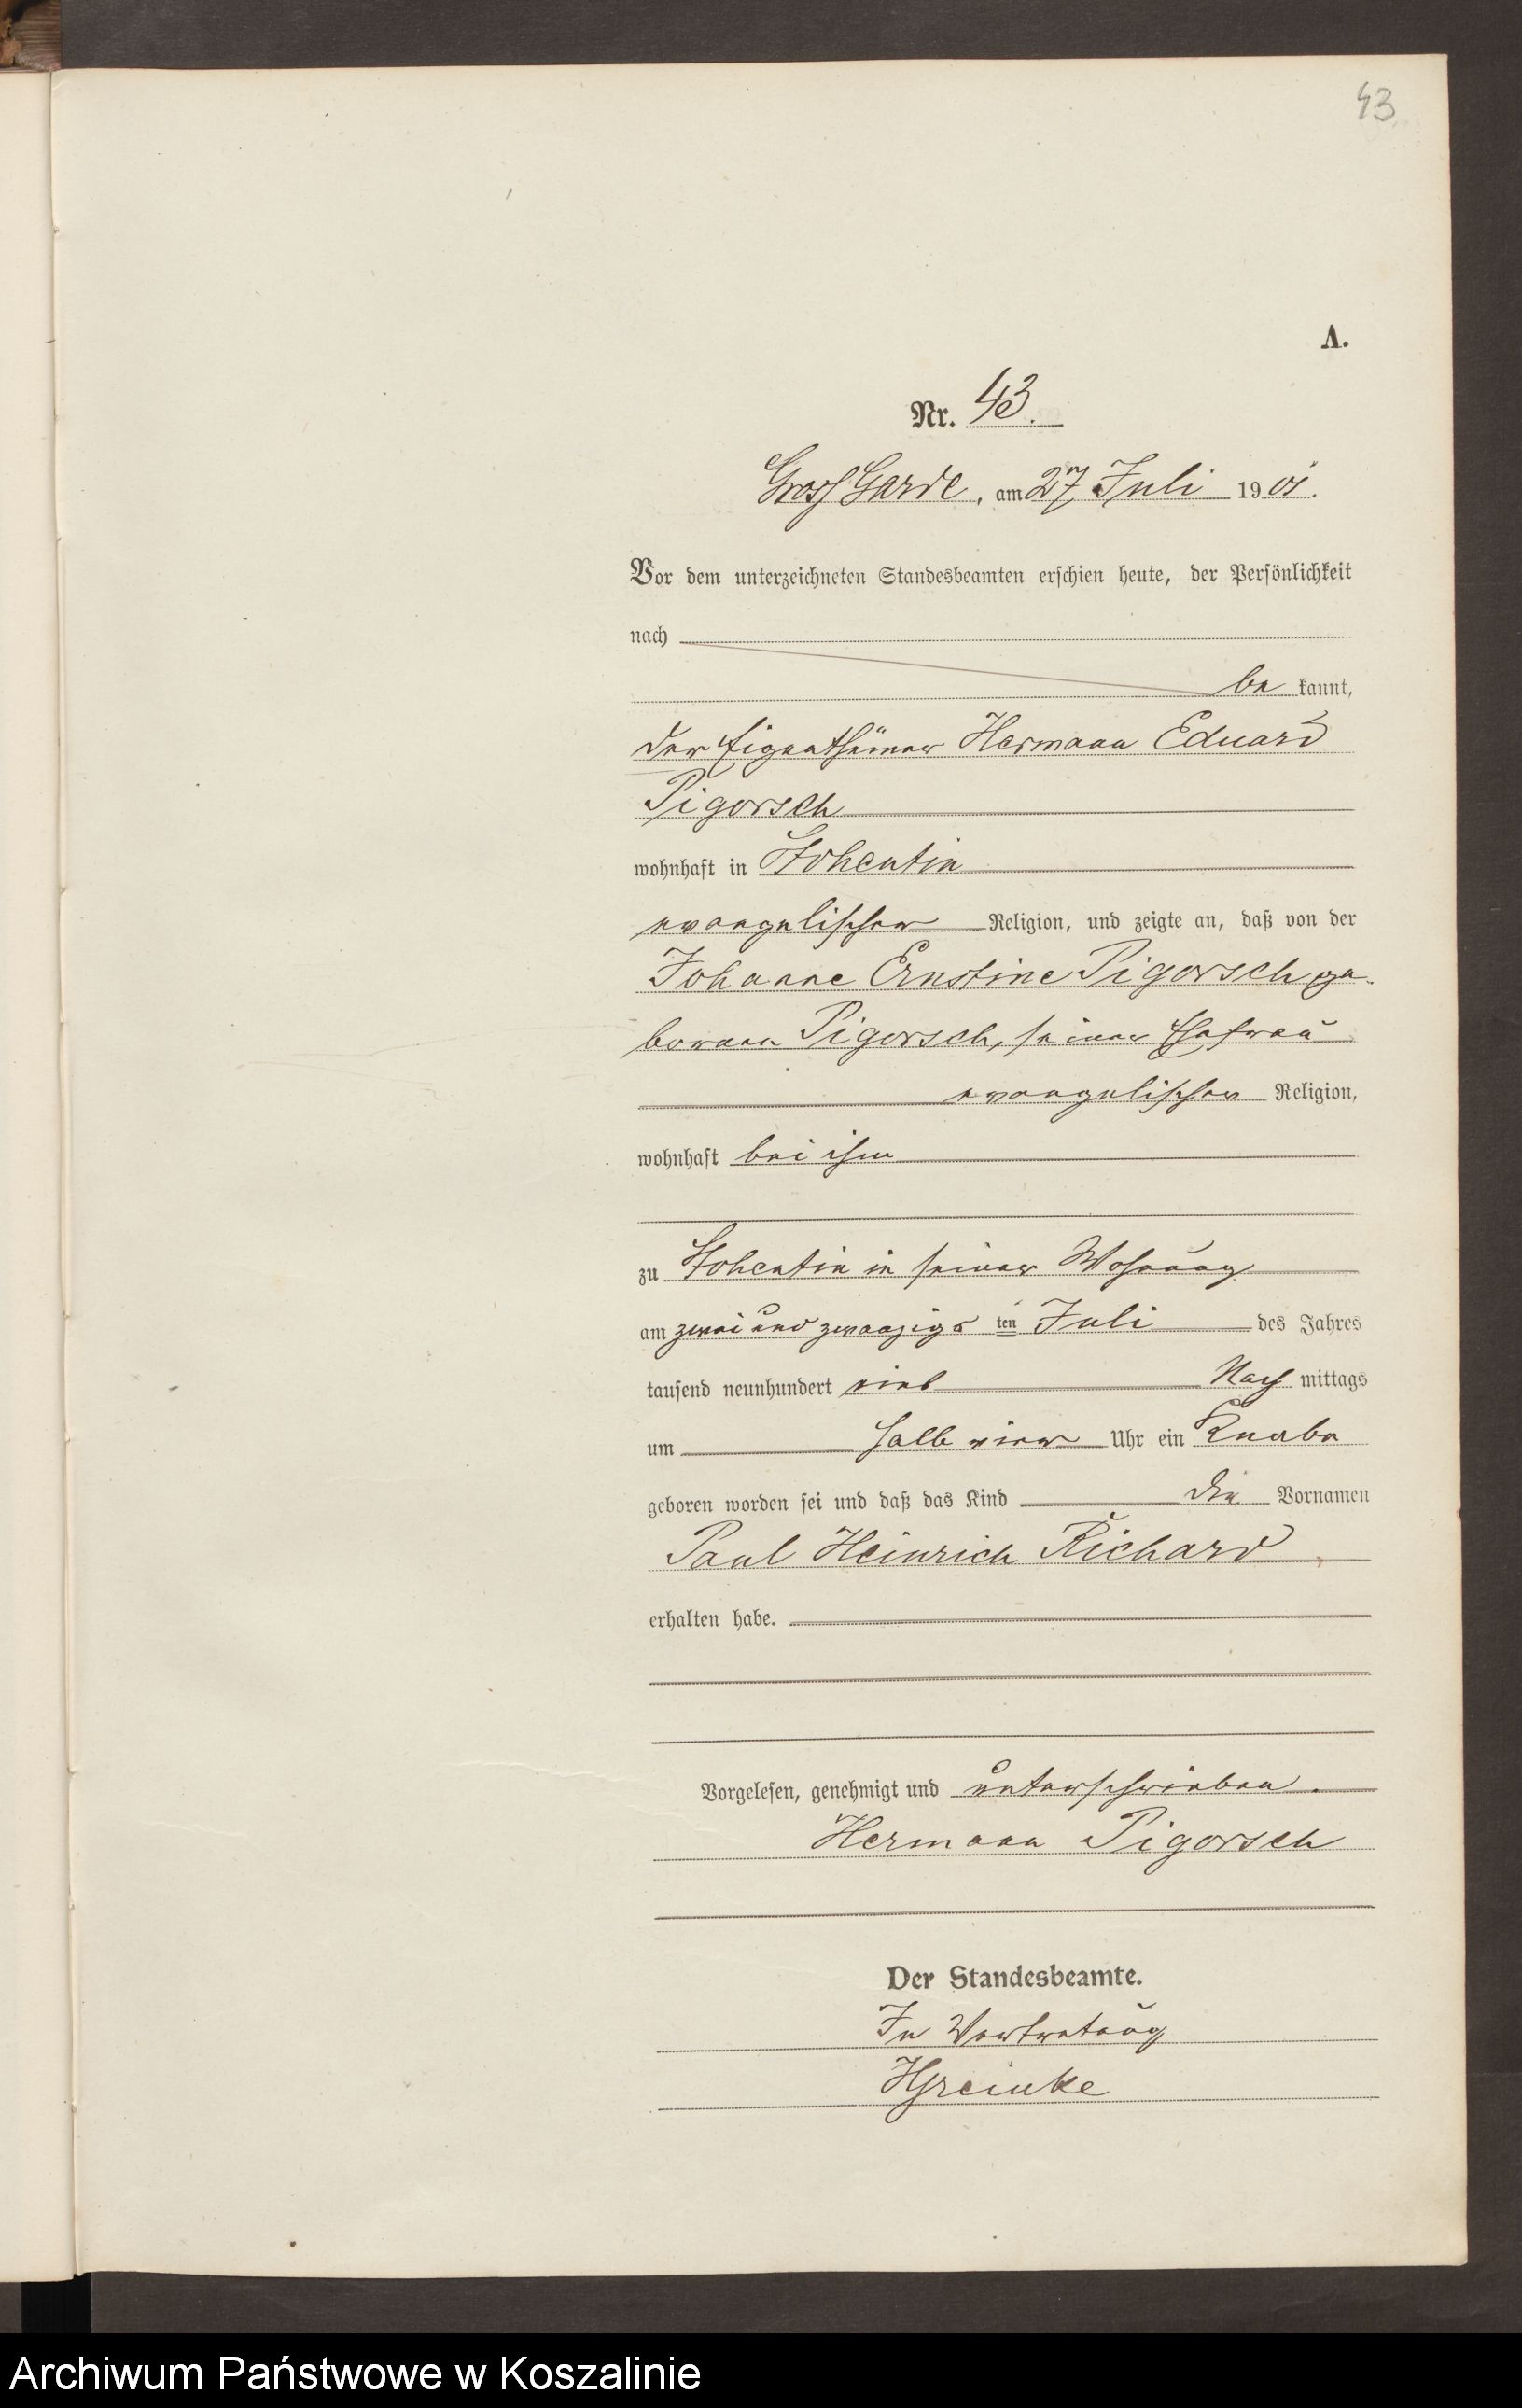 43
A.
Nr. 43.
Gross Garde, am 27 Juli 1901.
Vor dem unterzeichneten Standesbeamten erschien heute, der Persönlichkeit
nach
be kannt,
der Eigenthümer Hermann Eduard
Pigorsch
wohnhaft in Stohentin
evangelischer Religion, und zeigte an, daß von der
Johanne Ernstine Pigorsch ge-
borenen Pigorsch, seiner Ehefrau
evangelischer Religion,
wohnhaft bei ihm
zu Stohentin in seiner Wohnung
am zwei und zwanzigsten Juli des Jahres
tausend neunhundert eins Nach mittags
um halb vier Uhr ein Knabe
geboren worden sei und daß das Kind die Vornamen
Paul Heinrich Richard
erhalten habe.
Vorgelesen, genehmigt und unterschrieben.
Hermann Pigorsch
Der Standesbeamte.
In Vertretung
HGreinke
Archiwum Państwowe w Koszalinie